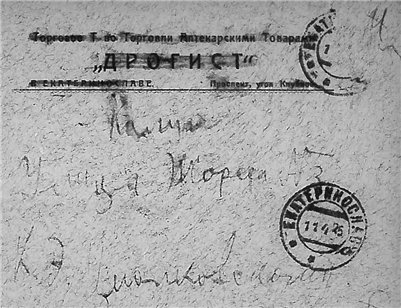 Торговое Т-во Торговли Аптекарскими Товарами
„ДРОГИСТ“
в ЕКАТЕРИНОСЛАВЕ. Проспект, угол
Калуга
Улица Жореса 3
ЕКАТЕРИНОСЛАВ
11 4 25
К. Э. Циолковскому